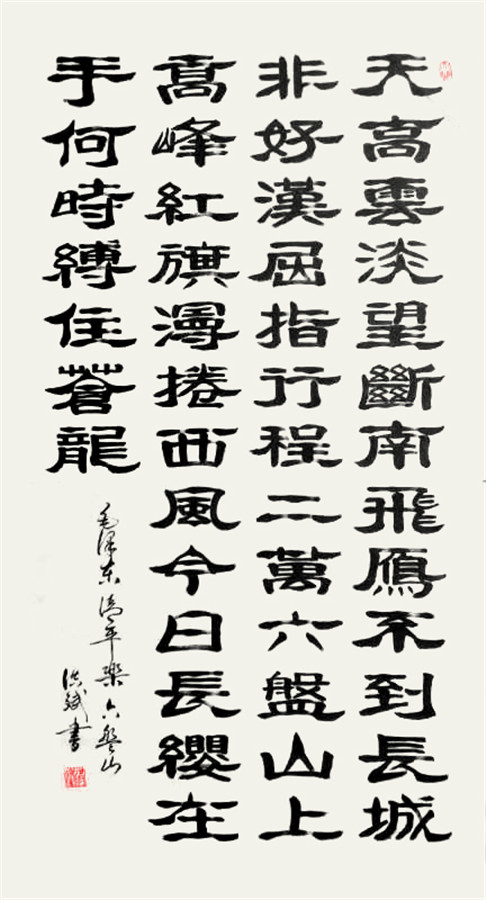 天高雲淡望斷南飛鴈不到長城
非好漢屈指行程二萬六盤山上
高峰紅旗漫捲西風今日長纓在
手何時縛住蒼龍
毛泽东清平樂六盘山
斌書